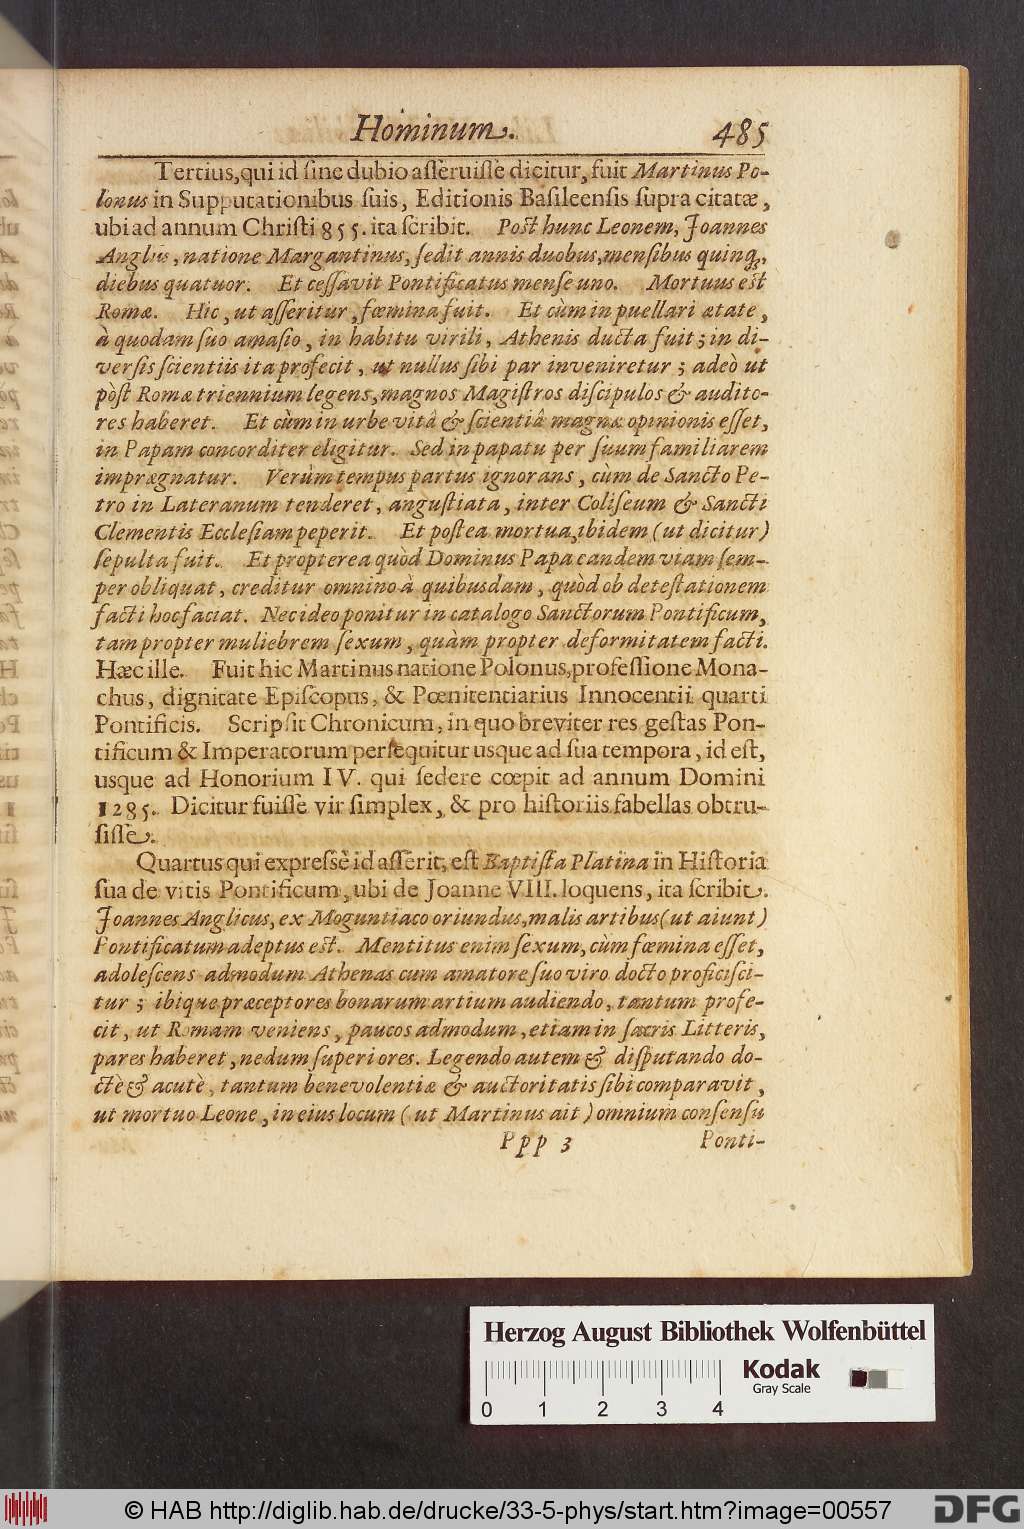 Hominum. 485
Tertius, qui id ſine dubio aſſeruiſſe dicitur, fuit Martinus Po-
lonus in Supputationibus ſuis, Editionis Baſileenſis ſupra citatæ,
ubi ad annum Chriſti 855. ita ſcribit. Poſt hunc Leonem, Joannes
Anglus, natione Margantinus, ſedit annis duobus, menſibus quinq;,
diebus quatuor. Et ceſſavit Pontificatus menſe uno. Mortuus eſt
Romæ. Hic, ut aſſeritur, fœmina fuit. Et cùm in puellari ætate,
à quodam ſuo amaſio, in habitu virili, Athenis ducta fuit; in di-
verſis ſcientiis ita profecit, ut nullus ſibi par inveniretur; adeò ut
pòſt Romæ triennium legens, magnos Magiſtros diſcipulos & audito-
res haberet. Et cùm in urbe vitâ & ſcientiâ magnæ opinionis eſſet,
in Papam concorditer eligitur. Sed in papatu per ſuum familiarem
imprægnatur. Verùm tempus partus ignorans, cùm de Sancto Pe-
tro in Lateranum tenderet, anguſtiata, inter Coliſeum & Sancti
Clementis Eccleſiam peperit. Et poſtea mortua, ibidem (ut dicitur)
ſepulta fuit. Et propterea quòd Dominus Papa eandem viam ſem-
per obliquat, creditur omnino à quibusdam, quòd ob deteſtationem
facti hoc faciat. Nec ideo ponitur in catalogo Sanctorum Pontificum,
tam propter muliebrem ſexum, quàm propter deformitatem facti.
Hæc ille. Fuit hic Martinus natione Polonus, profeſſione Mona-
chus, dignitate Epiſcopus, & Pœnitentiarius Innocentii quarti
Pontificis. Scripſit Chronicum, in quo breviter res geſtas Pon-
tificum & Imperatorum perſequitur usque ad ſua tempora, id eſt,
usque ad Honorium IV. qui ſedere cœpit ad annum Domini
1285. Dicitur fuiſſe vir ſimplex, & pro hiſtoriis fabellas obtru-
ſiſſe.
Quartus qui expreſſè id aſſerit, eſt Baptiſta Platina in Hiſtoria
ſua de vitis Pontificum, ubi de Joanne VIII. loquens, ita ſcribit.
Joannes Anglicus, ex Moguntiaco oriundus, malis artibus (ut aiunt)
Pontificatum adeptus eſt. Mentitus enim ſexum, cùm fœmina eſſet,
adoleſcens admodum Athenas cum amatore ſuo viro docto proficiſci-
tur; ibique præceptores bonarum artium audiendo, tantum profe-
cit, ut Romam veniens, paucos admodum, etiam in ſacris Litteris,
pares haberet, nedum ſuperiores. Legendo autem & diſputando do-
ctè & acutè, tantum benevolentiæ & auctoritatis ſibi comparavit,
ut mortuo Leone, in eius locum (ut Martinus ait) omnium conſenſu
Ppp 3 Ponti-
Herzog August Bibliothek Wolfenbüttel
Kodak
Gray Scale
0 1 2 3 4
© HAB http://diglib.hab.de/drucke/33-5-phys/start.htm?image=00557
DFG